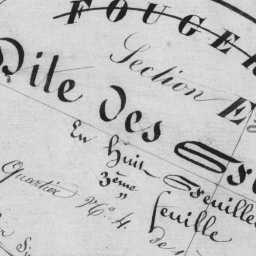 FOUGER
Section E
Dite des
En huit feuilles
3ème feuille
Quartier No. 4
de